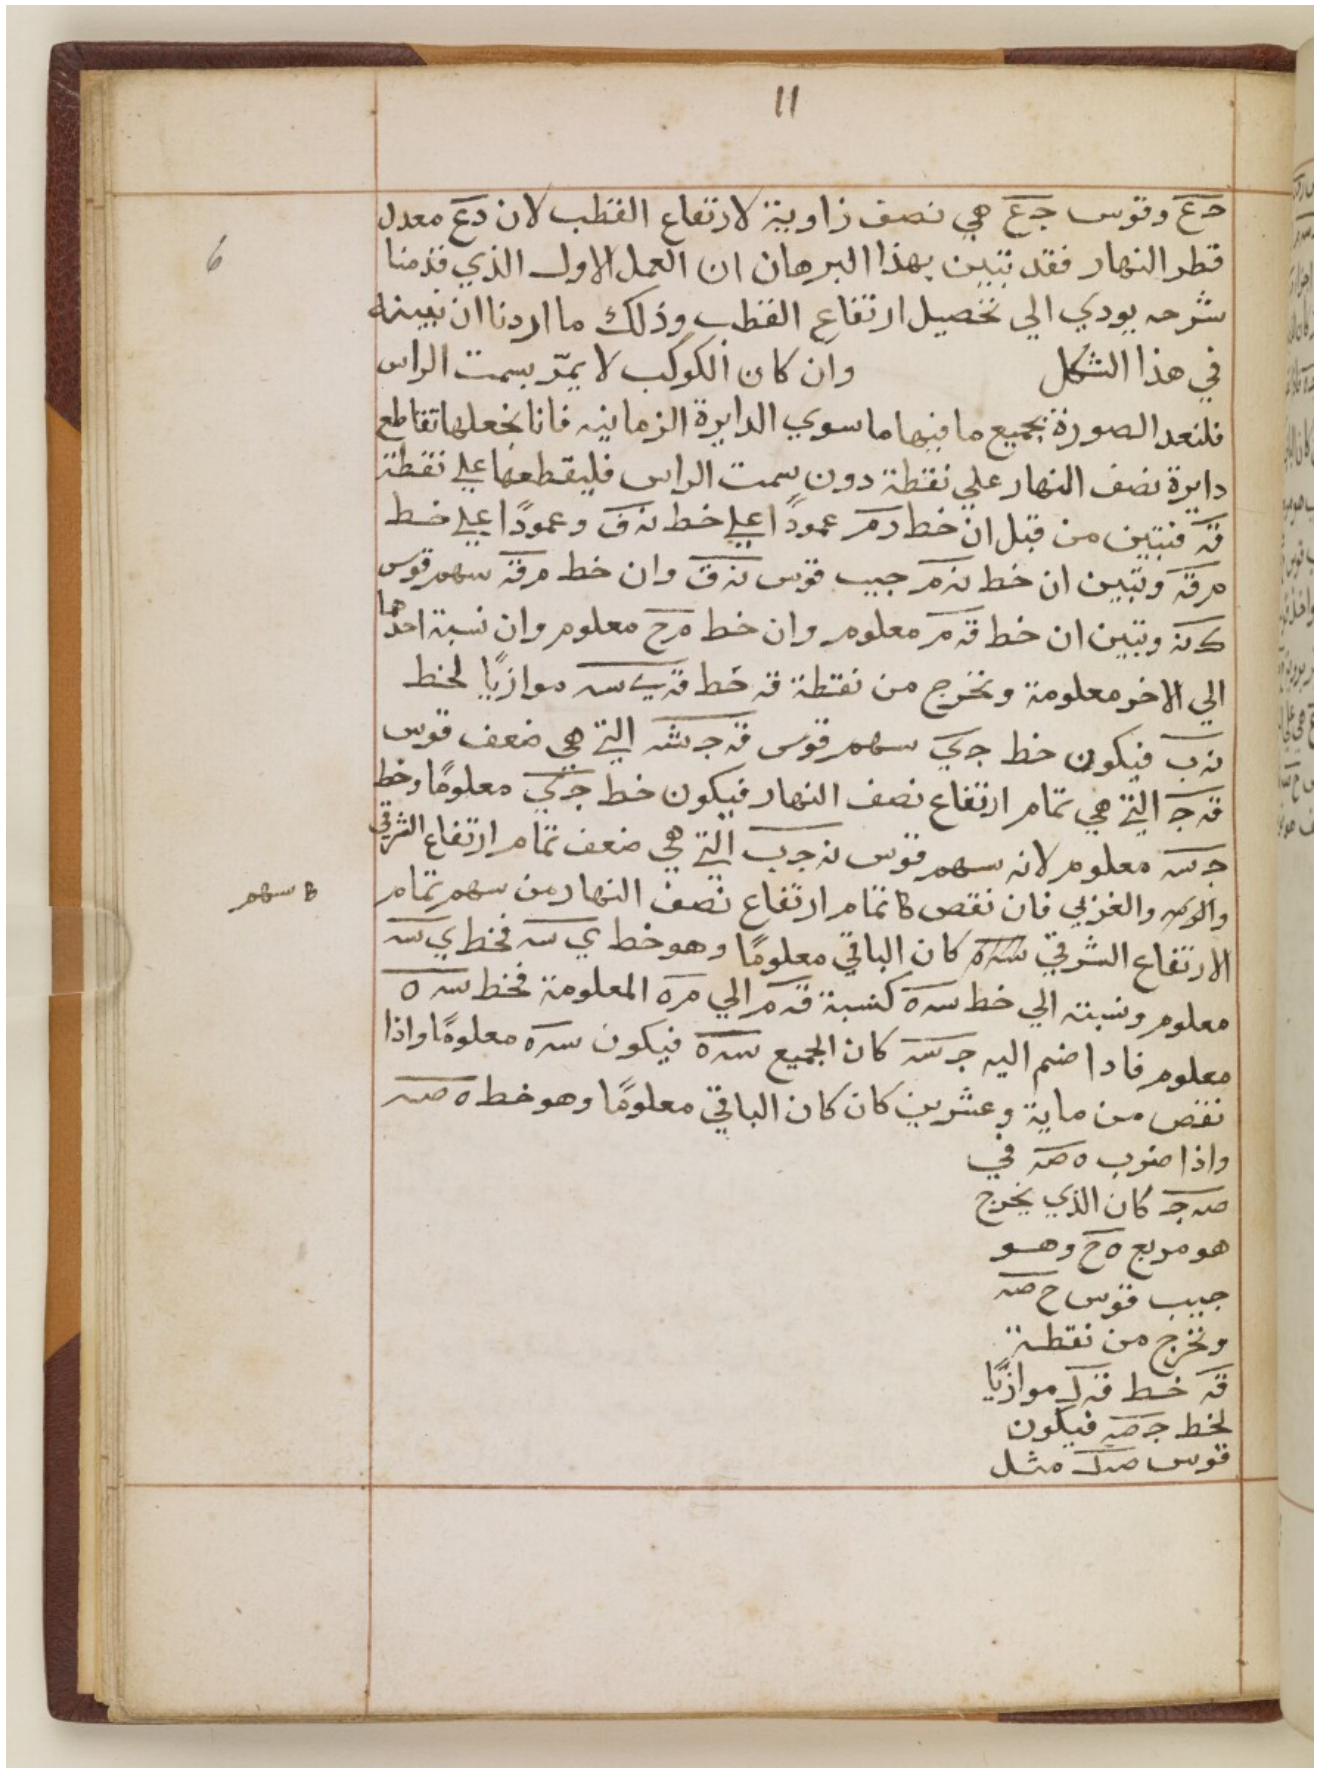 11
حـع وقوس جـع هي نصف زاوية لارتفاع القطب لان دع معدل
6
قطر النهار فقد تبين بهذا البرهان ان العمل الاول الذي قدمنا
شرحه يودي الي تحصيل ارتفاع القطب وذلك ما اردنا ان نبينه
في هذا الشكل وان كان الكوكب لا يمرّ بسمت الراس
فلنعد الصورة بجميع ما فيها ما سوي الدايرة الزمانيه فانا نجعلها تقاطع
دايرة نصف النهار علي نقطة دون سمت الراس فليقطعها علي نقطة
قـ فنبين من قبل ان خط رم عموداً علي خط نـ ق وعموداً علي خط
م قـ وتبين ان خط نـ م جيب قوس نـ ق وان خط م قـ سهم قوس
ك نـ وتبين ان خط قـ م معلوم وان خط م ح معلوم وان نسبة احدهما
الي الاخر معلومة ونخرج من نقطة قـ خط قـ ي سـ موازيًا لخط
نـ ب فيكون خط جـ ي سهم قوس قـ جـ شـ التي هي ضعف قوس
قـ جـ التي هي تمام ارتفاع نصف النهار فيكون خط جـ ي معلومًا وخط
جـ سـ معلوم لانه سهم قوس نـ جـ ب التي هي ضعف تمام ارتفاع الشرقي
والغربي فان نقص كا تمام ارتفاع نصف النهار من سهم تمام
كا سهم
الارتفاع الشرقي كان الباقي معلومًا وهو خط ي سـ فخط ي سـ
معلوم ونسبته الي خط سـ ه كنسبة قـ م الي م ه المعلومة فخط سـ ه
معلوم فاذا ضم اليه جـ سـ كان الجميع سـ ه فيكون سـ ه معلومًا واذا
نقص من ماية وعشرين كان كان الباقي معلومًا وهو خط ه صـ
واذا ضرب ه صـ في
صـ جـ كان الذي يخرج
هو مربع ه ح وهو
جيب قوس ح صـ
ونخرج من نقطة
قـ خط قـ ك موازيًا
لخط جـ صـ فيكون
قوس صـ ك مثل